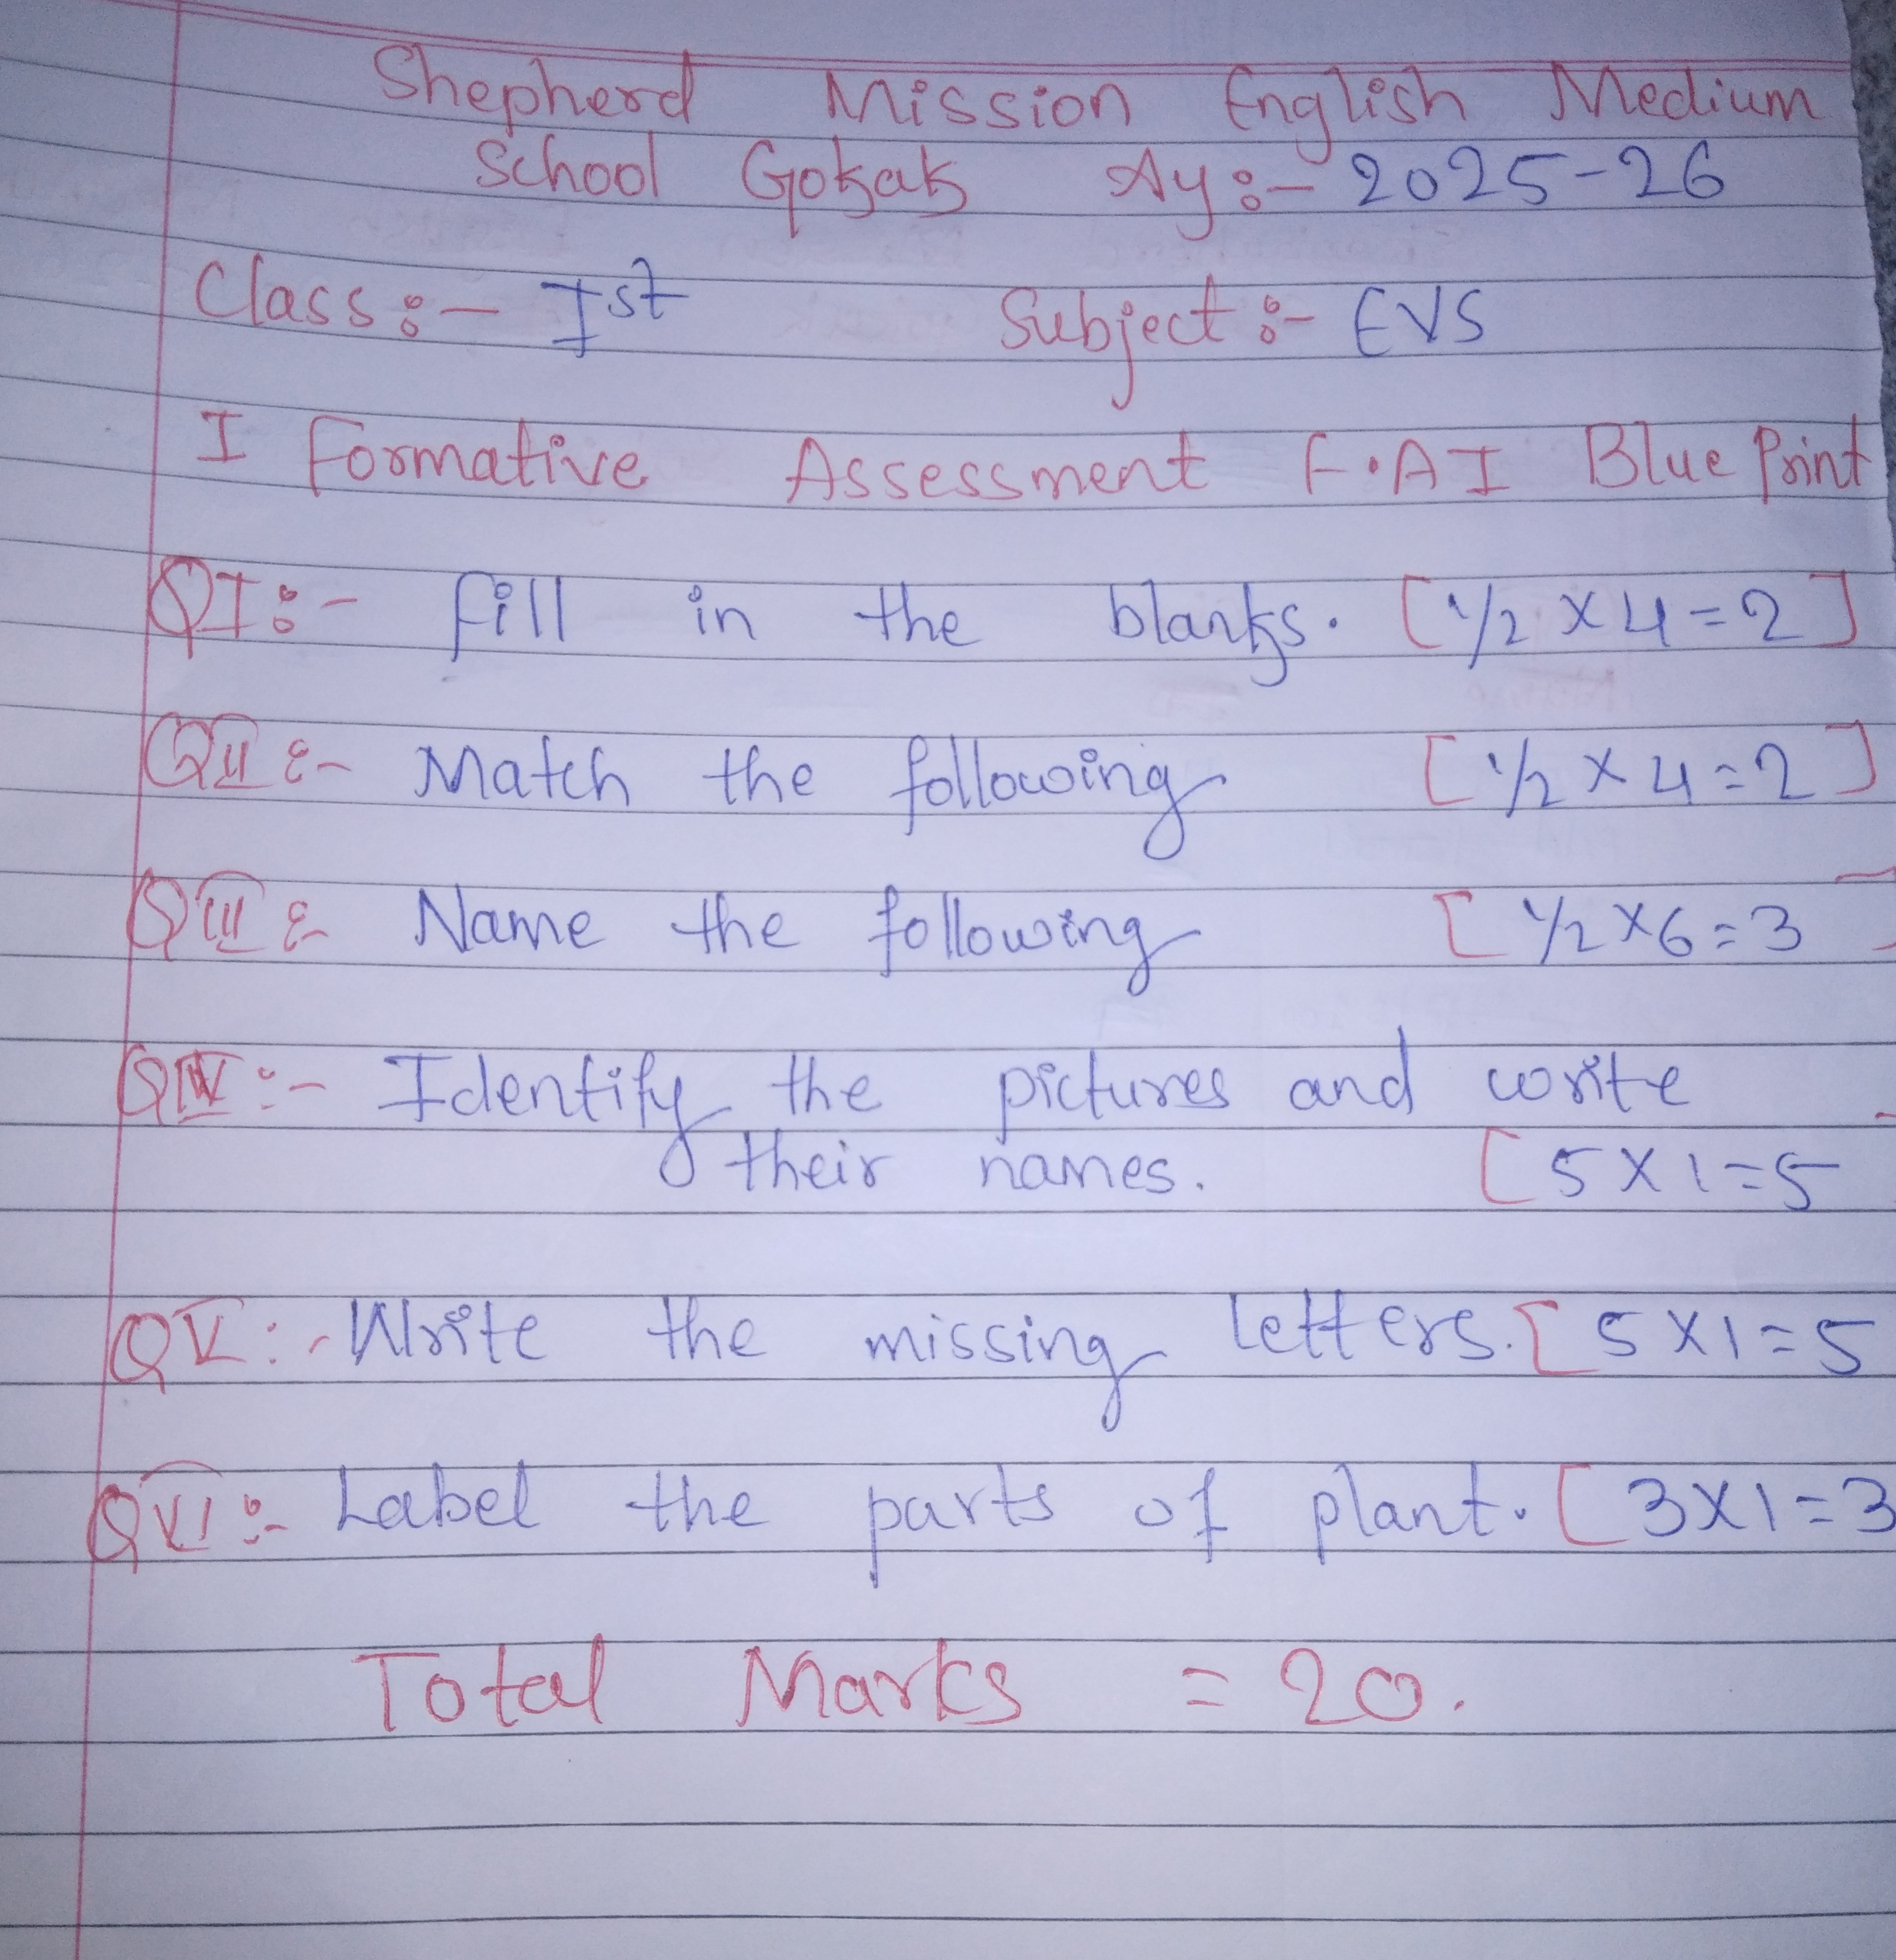 Shepherd Mission English Medium
School Gokak Ay:- 2025-26
Class:- Ist Subject:- EVS
I Formative Assessment F.A I Blue Print
QI:- fill in the blanks. [1/2 X 4=2]
QII:- Match the following [1/2 X 4=2]
QIII:- Name the following [1/2 X6=3]
QIV:- Identify the pictures and write
their names. [5X1=5
QV:- Write the missing letters. [5X1=5
QVI:- Label the parts of plant. [3X1=3
Total Marks = 20.